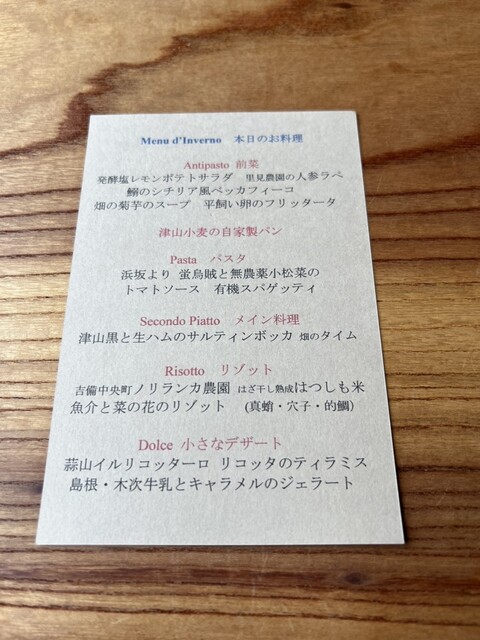 Menu d'Inverno 本日のお料理
Antipasto 前菜
発酵塩レモンポテトサラダ 里見農園の人参ラペ
鰯のシチリア風ベッカフィーコ
畑の菊芋のスープ 平飼い卵のフリッタータ
津山小麦の自家製パン
Pasta パスタ
浜坂より 蛍烏賊と無農薬小松菜の
トマトソース 有機スパゲッティ
Secondo Piatto メイン料理
津山黒と生ハムのサルティンボッカ 畑のタイム
Risotto リゾット
吉備中央町ノリランカ農園 はざ干し熟成はつしも米
魚介と菜の花のリゾット (真蛸・穴子・的鯛)
Dolce 小さなデザート
蒜山イルリコッターロ リコッタのティラミス
島根・木次牛乳とキャラメルのジェラート